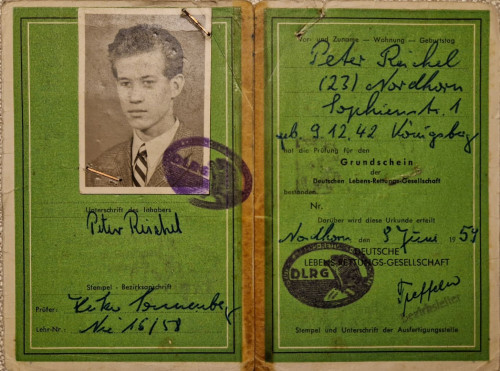 DLRG
Unterschrift des Inhabers
Peter Rischel
Stempel - Bezirksanschrift
Prüfer:
Lehr-Nr.: 16/58
Vor- und Zuname — Wohnung — Geburtstag
Peter Rischel
(23) Nordhorn
Sophienstr. 1
geb. 9.12.42 Königsberg
hat die Prüfung für den
Grundschein
der
Deutschen Lebens-Rettungs-Gesellschaft
bestanden.
Nr.
Darüber wird diese Urkunde erteilt
Nordhorn den 9. Juni 1959
DEUTSCHE
LEBENS-RETTUNGS-GESELLSCHAFT
DLRG
Bezirksleiter
Stempel und Unterschrift der Ausfertigungsstelle